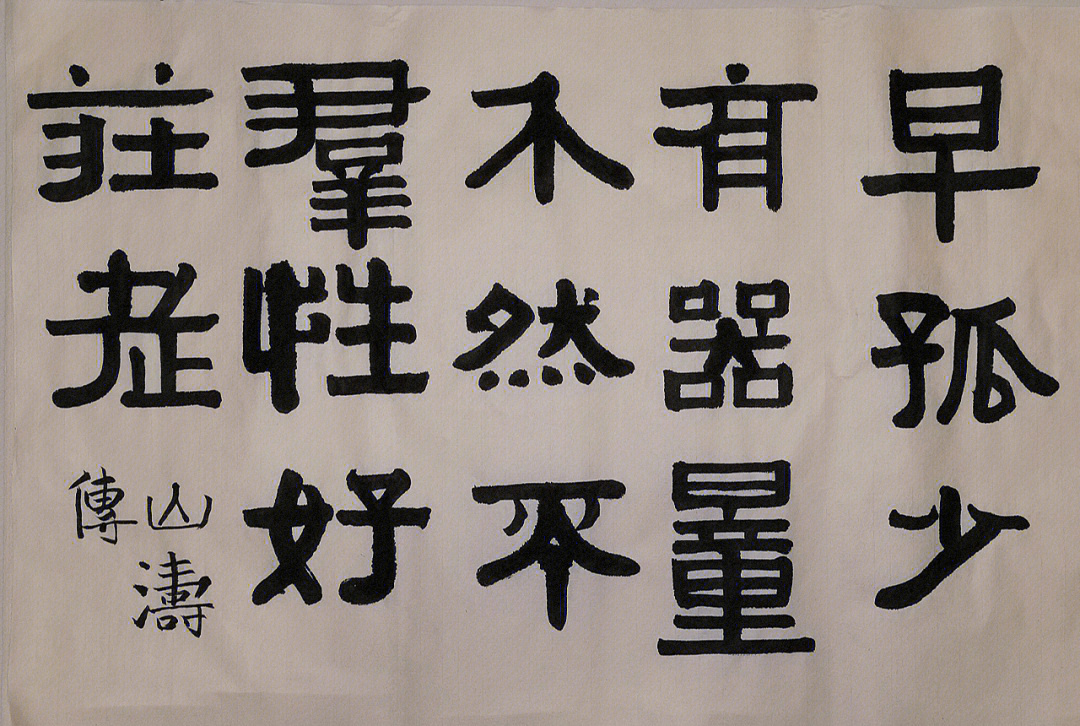 早孤少
有器量
介然不
羣性好
莊老
山濤
傳